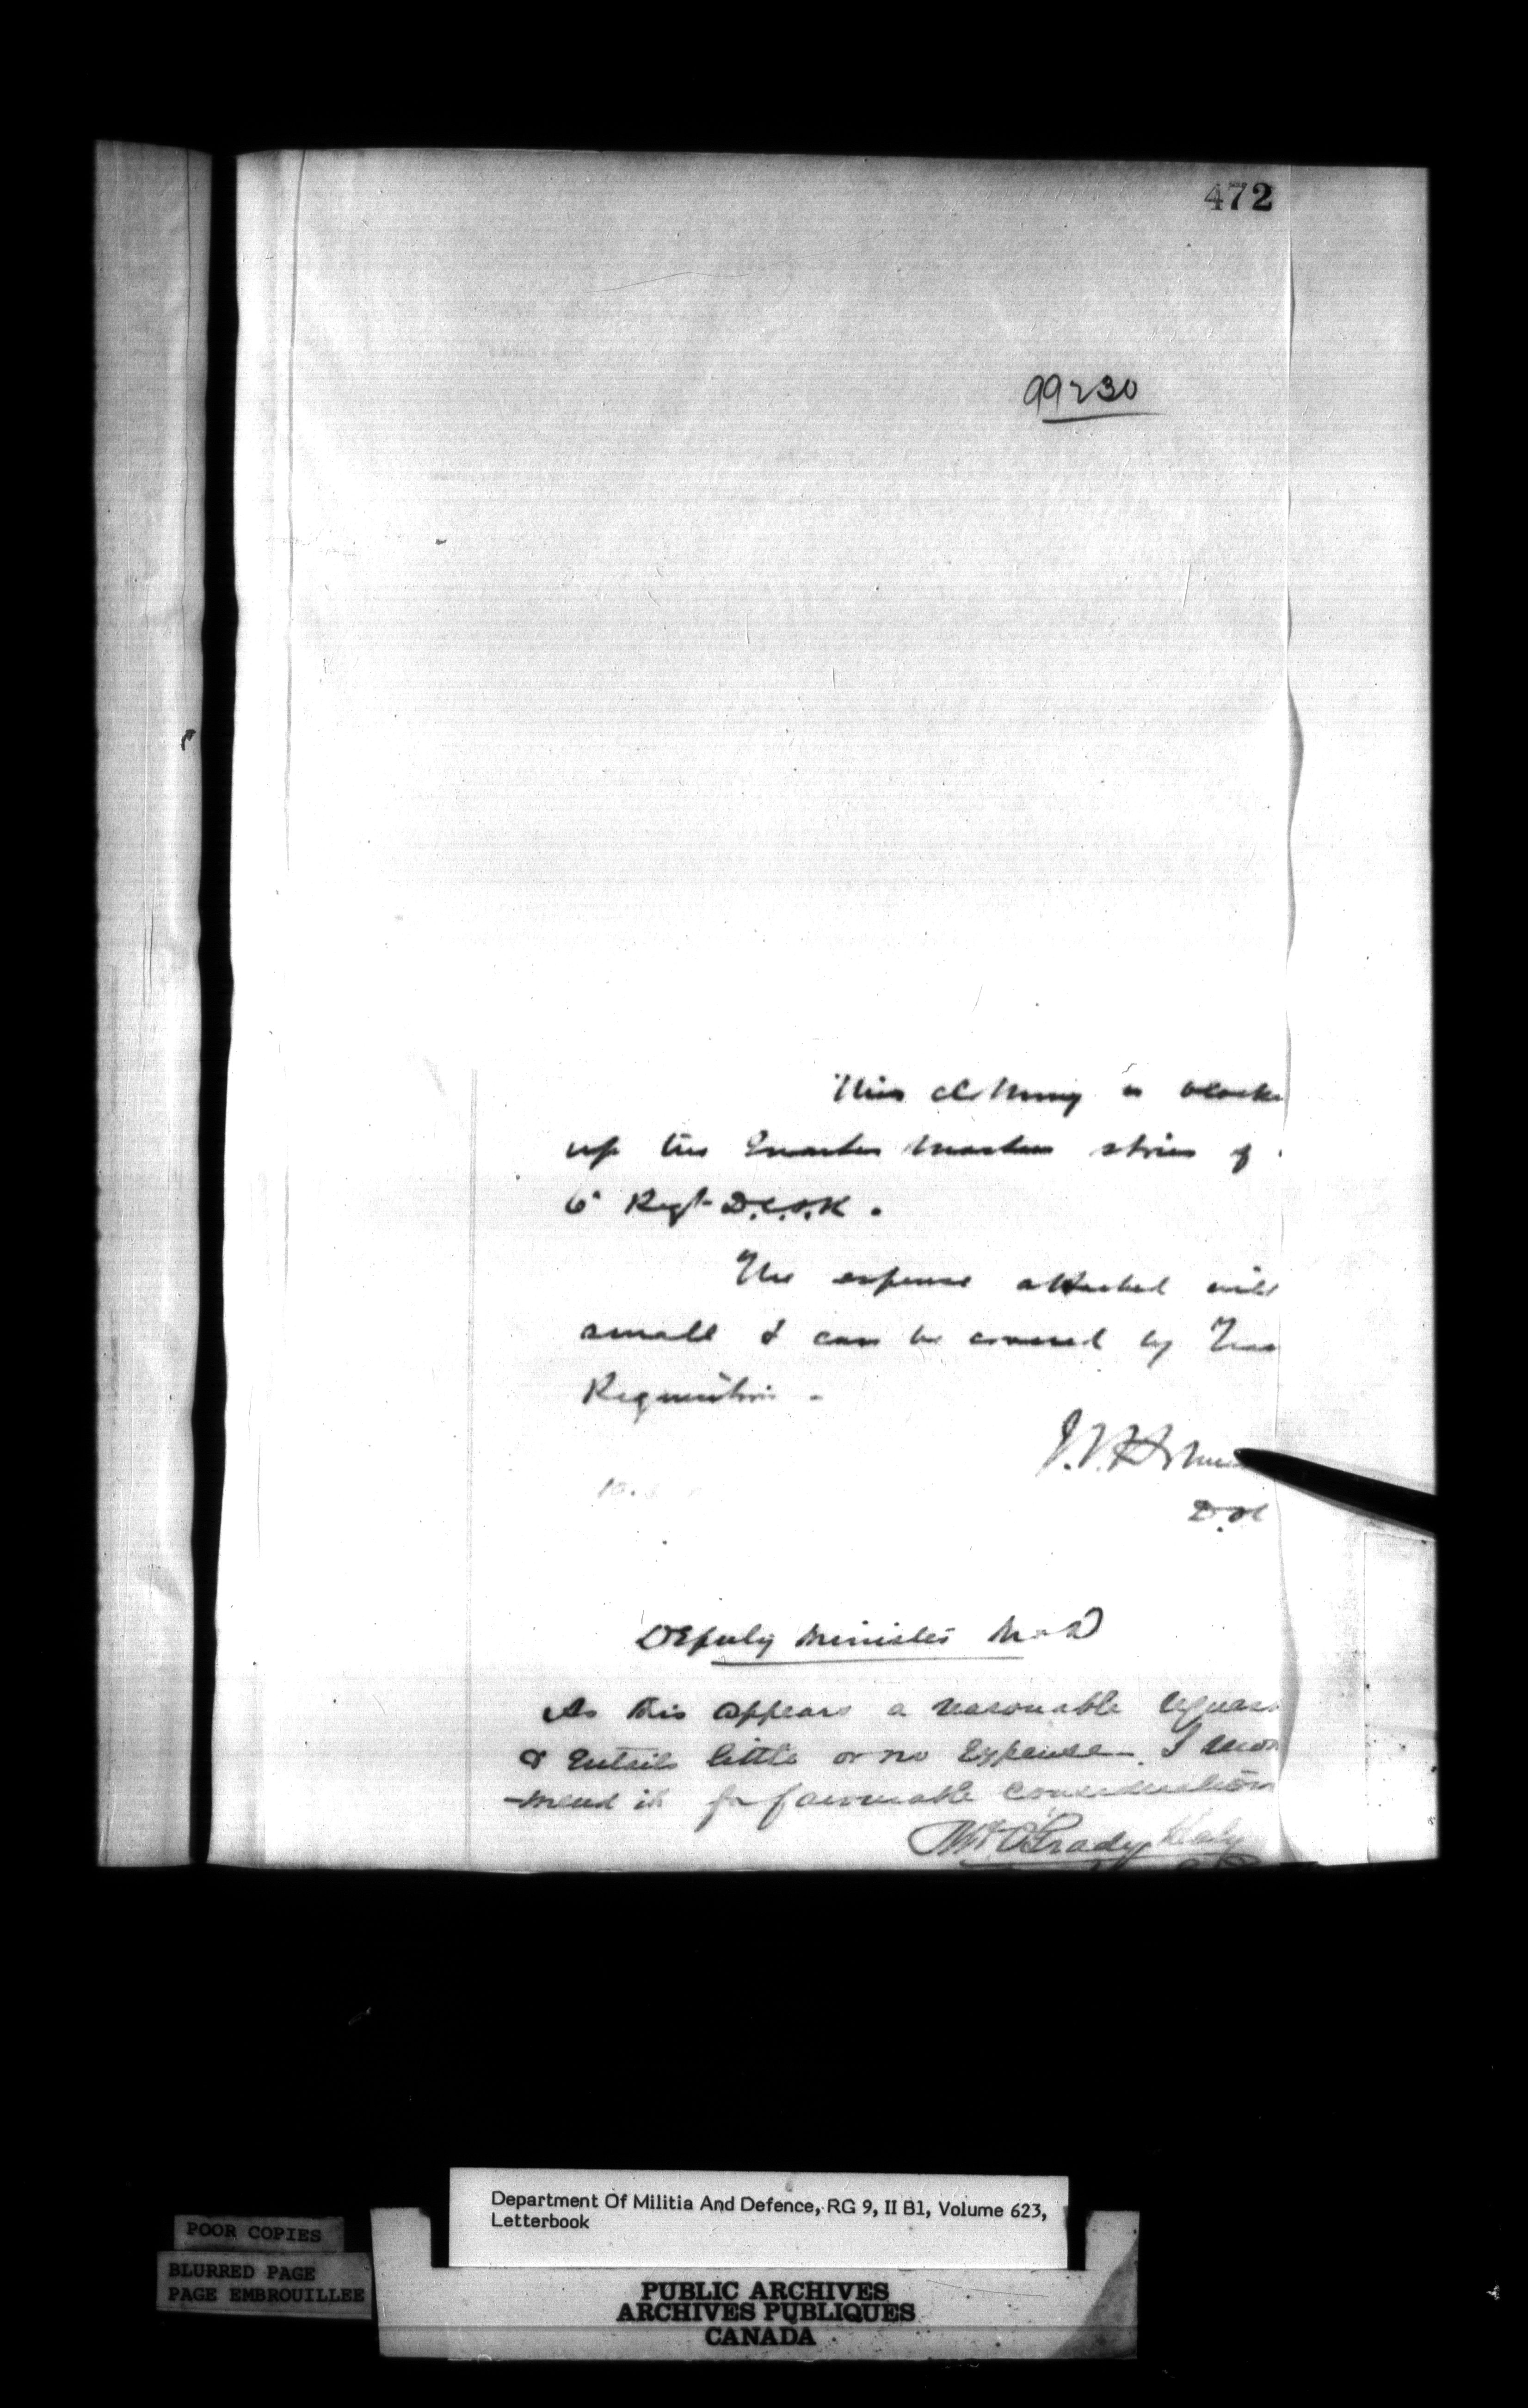 472
99230
This clothing is blocki
up the Quarter Masters stores of
6th Regt D.C.O.R.
The expense attached will
small & can be covered by
Requisition.
Deputy Minister M & D
As this appears a reasonable request
& entails little or no Expense. I recom
-mend it for favourable consideration
O'Grady Haly
Department Of Militia And Defence, RG 9, II B1, Volume 623,
Letterbook
POOR COPIES
BLURRED PAGE
PAGE EMBROUILLEE
PUBLIC ARCHIVES
ARCHIVES PUBLIQUES
CANADA